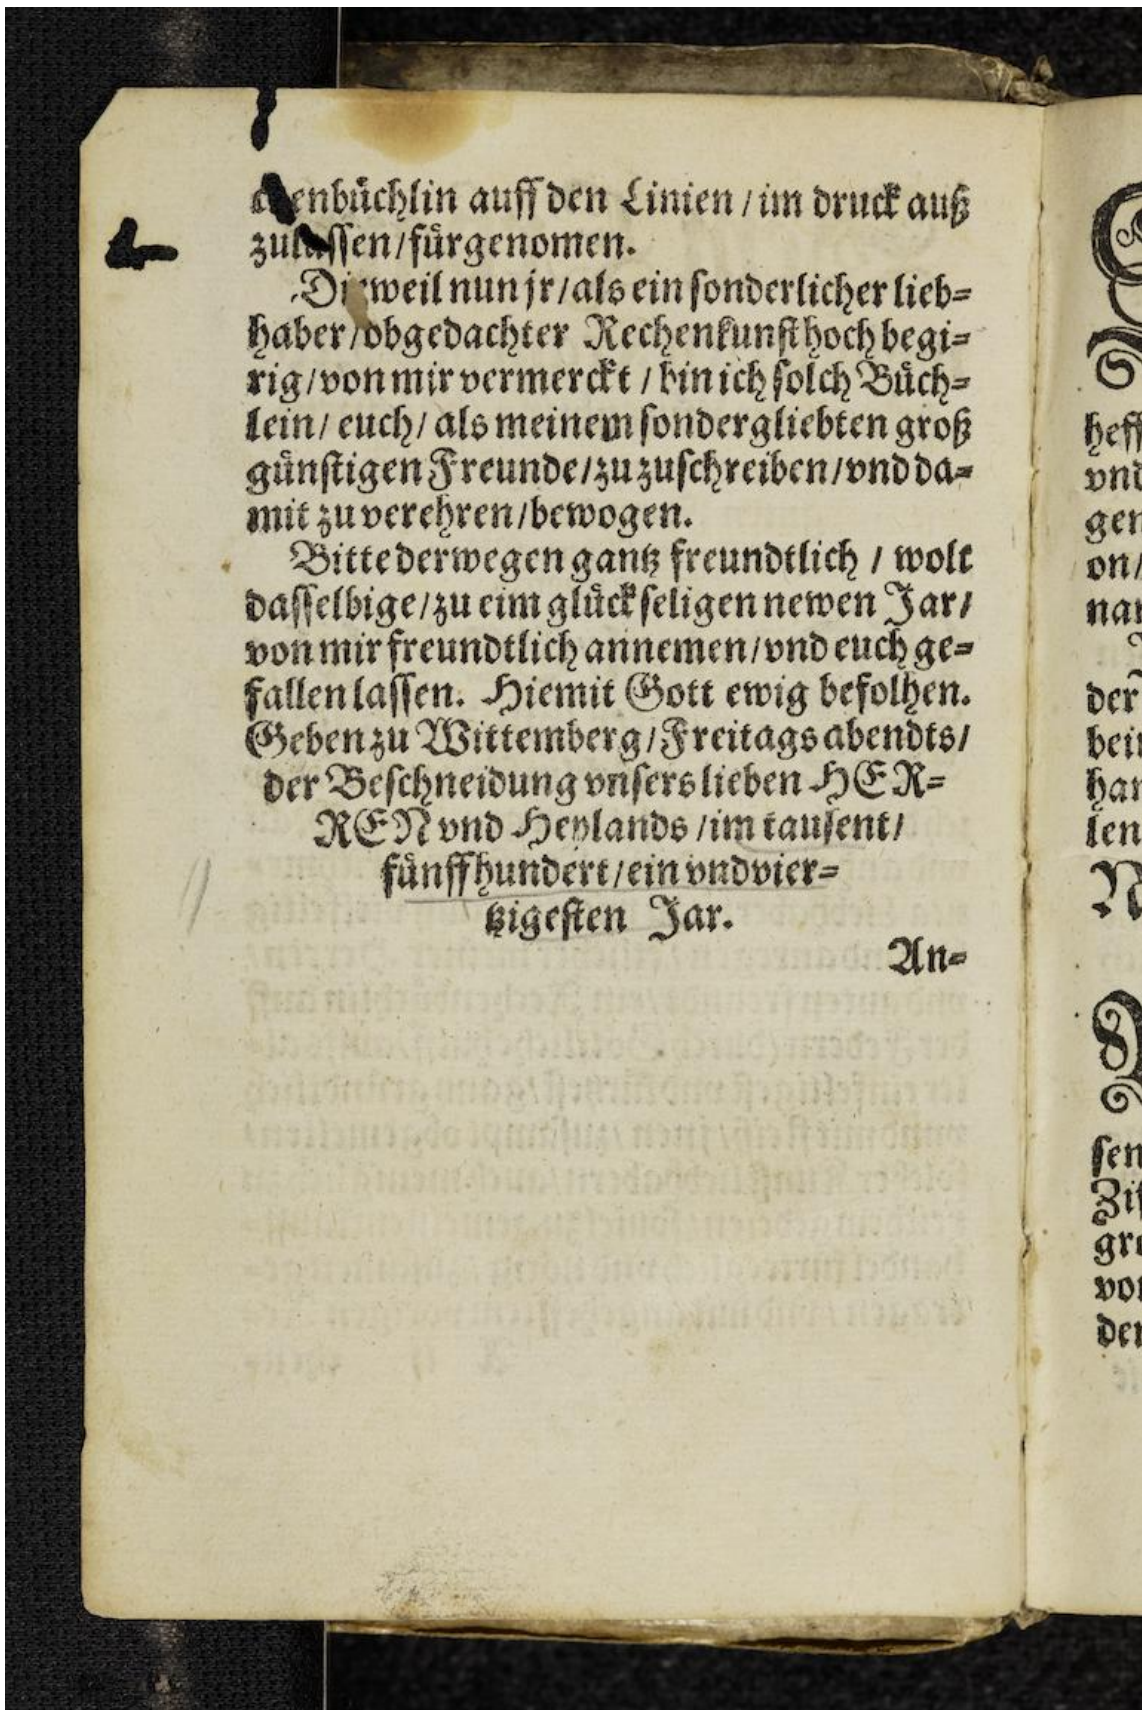 chenbüchlin auff den Linien / im druck auß
zulassen / fürgenomen.
Dieweil nun jr / als ein sonderlicher lieb=
haber / obgedachter Rechenkunst hoch begi=
rig / von mir vermerckt / bin ich solch Büch=
lein / euch / als meinem sondergliebten groß
günstigen Freunde / zu zuschreiben / vnd da=
mit zu verehren / bewogen.
Bitte derwegen gantz freundtlich / wolt
dasselbige / zu eim glückseligen newen Jar /
von mir freundtlich annemen / vnd euch ge=
fallen lassen. Hiemit Gott ewig befolhen.
Geben zu Wittemberg / Freitags abendts /
der Beschneidung vnsers lieben HER=
REN vnd Heylands / im tausent /
fünffhundert / ein vnd vier=
tzigesten Jar.
An=
heff
vnd
gen
on /
nan
der
bein
han
len
sen
Zif
gre
von
der